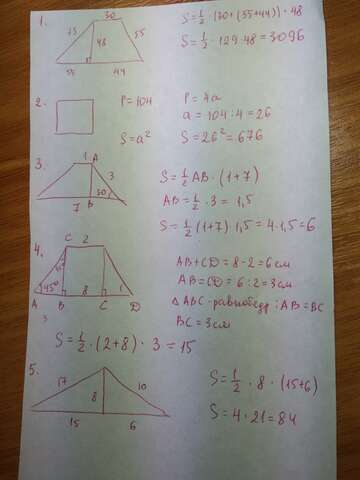 1.
30
73
48
55
55
44
S=1/2 · (30+(55+44)) · 48
S=1/2 · 129 · 48 = 3096
2.
P=104
S=a²
P=4a
a=104:4=26
S=26²=676
3.
1
A
3
30
7
B
S=1/2 AB · (1+7)
AB=1/2 · 3 = 1,5
S=1/2 (1+7) · 1,5 = 4 · 1,5 = 6
4.
C 2
45°
A B 8 C D
3
AB+CD=8-2=6см
AB=CD=6:2=3см
△ABC-равнобедр; AB=BC
BC=3см
S=1/2 · (2+8) · 3 = 15
5.
17
10
8
15
6
S=1/2 · 8 · (15+6)
S=4 · 21=84